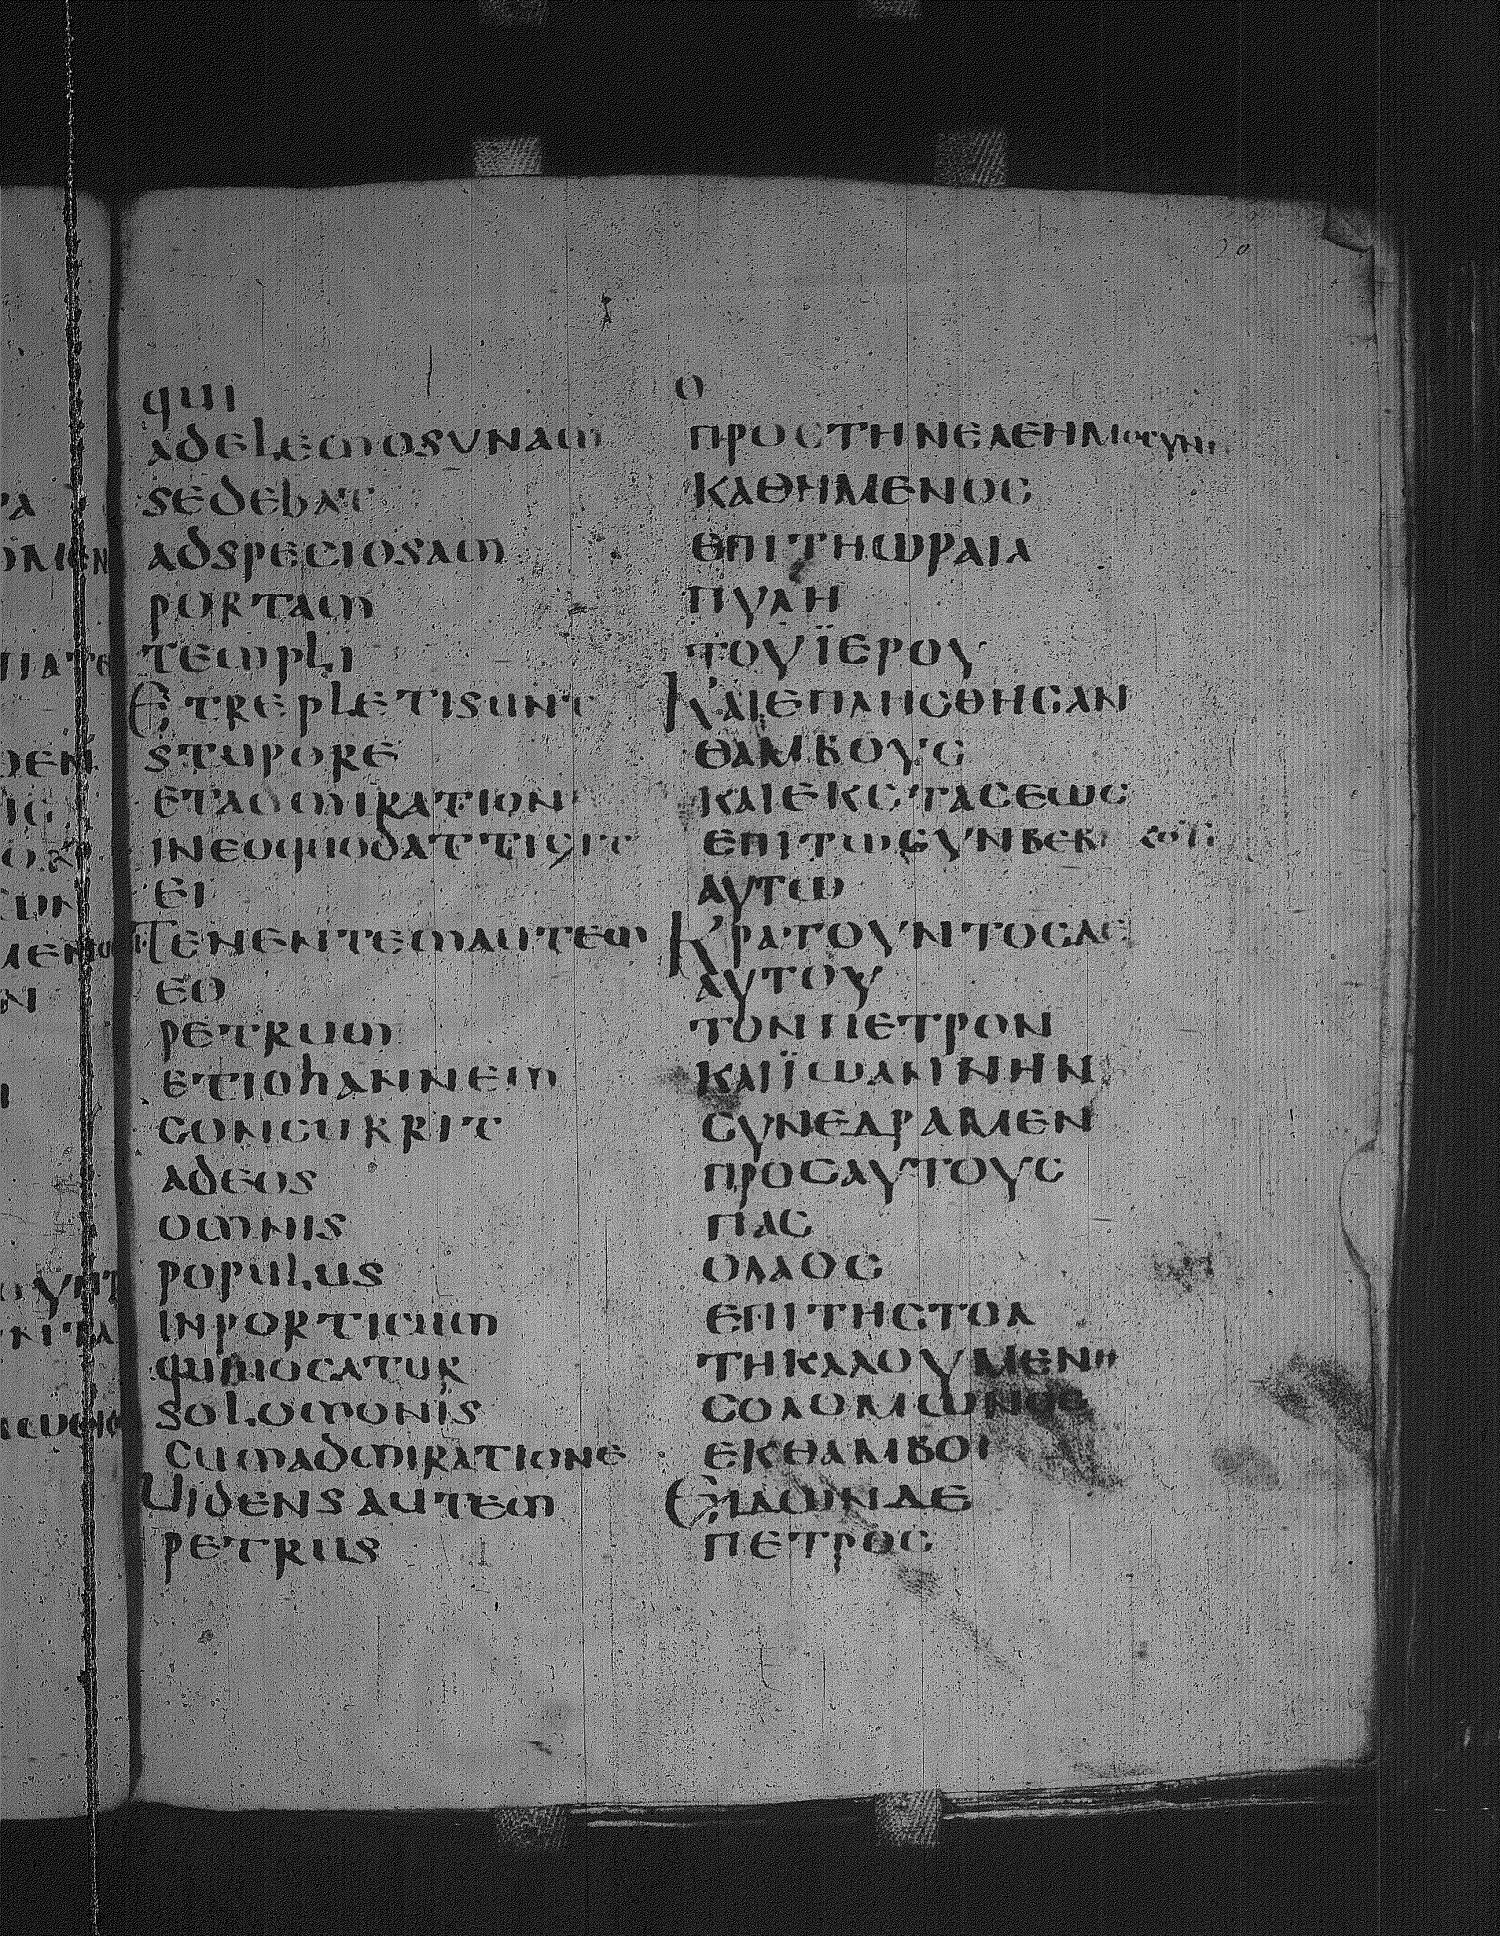 20
qui
adelemosunam
sedebat
adspeciosam
portam
templi
Etrepletisunt
stupore
etadmiration
ei
Tenentemautem
eo
petrum
etiohannem
concurrit
adeos
omnis
populus
inporticum
quiuocatur
solomonis
cumadmiratione
Uidensautem
petrus
ο
προςτηνελεημοςυνη
καθημενος
επιτηωραια
πυλη
τουϊερου
Καιεπληςθηςαν
θαμβους
καιεκςταςεως
αυτω
Κρατουντοςδε
αυτου
τονπετρον
καιϊωαννην
ςυνεδραμεν
προςαυτους
πας
ολαος
επιτηςτοα
τηκαλουμενη
ςολομωνος
εκθαμβοι
Ειδωνδε
πετρος